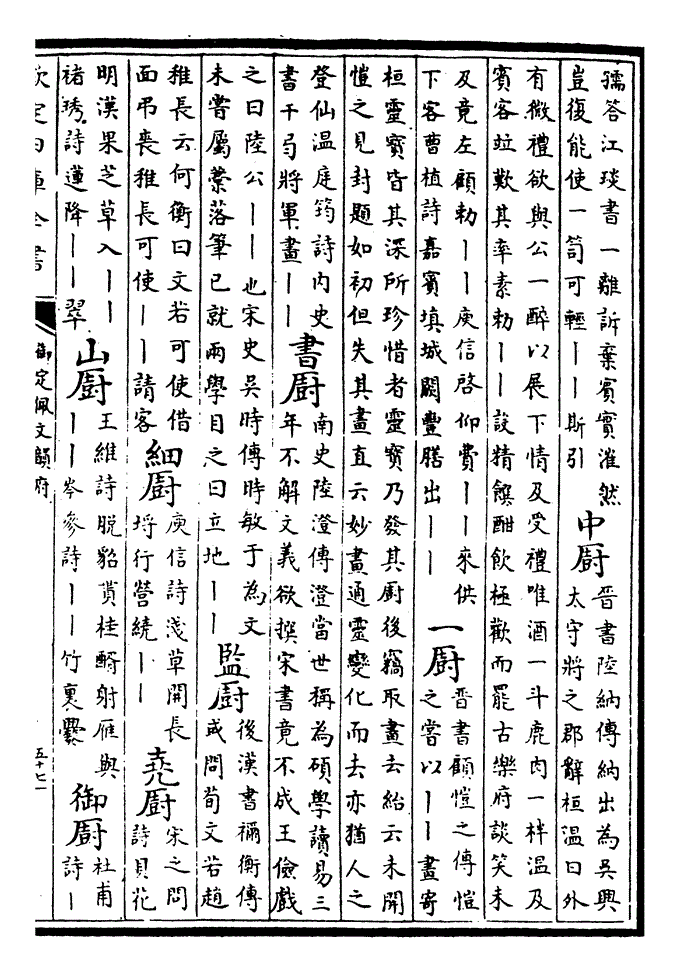 孺荅江琰書一離訴棄賓實漼然
豈復能使一笥可輕丨丨斯引
中厨
晉書陸納傳納出為吳興
太守將之郡辭桓温曰外
有微禮欲與公一醉以展下情及受禮唯酒一斗鹿肉一柈温及
賓客竝歎其率素勅丨丨設精饌酣飲極歡而罷古樂府談笑未
及竟左顧勅丨丨庾信啓仰費丨丨來供
下客曹植詩嘉賓填城闕豐膳出丨丨
一厨
晉書顧愷之傳愷
之嘗以丨丨畫寄
桓靈寶皆其深所珍惜者靈寶乃發其厨後竊取畫去紿云未開
愷之見封題如初但失其畫直云妙畫通靈變化而去亦猶人之
登仙温庭筠詩内史
書千弓將軍畫丨丨
書厨
南史陸澄傳澄當世稱為碩學讀易三
年不解文義欲撰宋書竟不成王儉戲
之曰陸公丨丨也宋史吳時傳時敏于為文
未嘗屬藁落筆已就兩學目之曰立地丨丨
監厨
後漢書禰衡傳
或問荀文若趙
稚長云何衡曰文若可使借
面弔喪稚長可使丨丨請客
細厨
庾信詩淺草開長
埒行營繞丨丨
堯厨
宋之問
詩貝花
明漢果芝草入丨丨
褚琇詩蓮降丨丨翠
山厨
王維詩脫貂貰桂醑射雁與
丨丨岑參詩丨丨竹裏爨
御厨
杜甫
詩丨
欽定四庫全書
御定佩文韻府
五十七